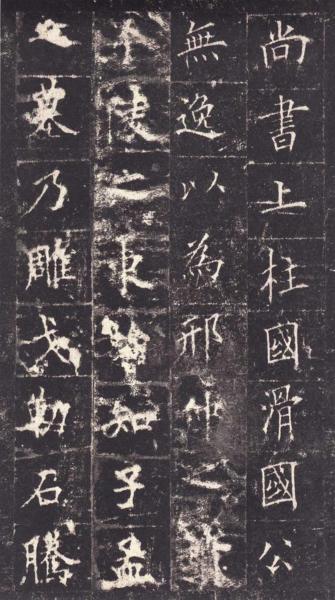 尚書上柱國滑國公
無逸以為邢仲之
平陵之東知子孟
之墓乃雕戈勒石騰